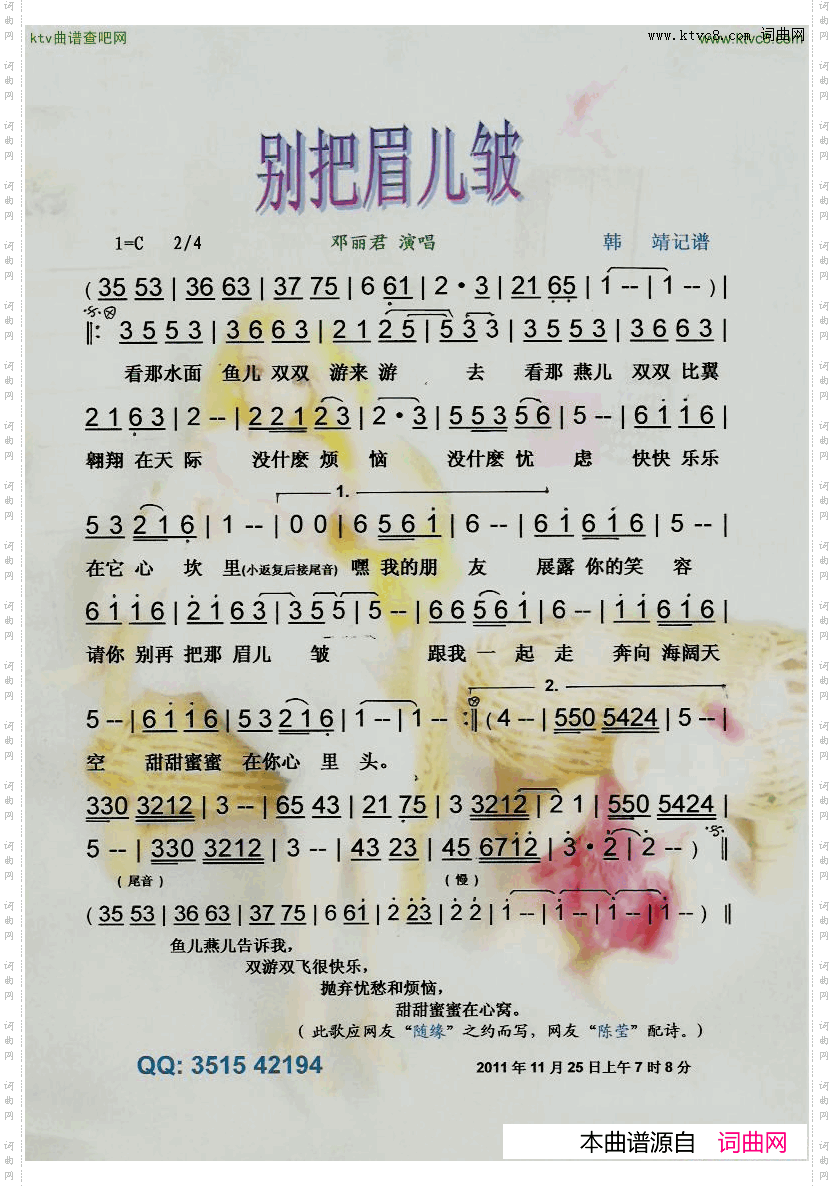 ktv曲谱查吧网
www.ktvc8.com 词曲网
别把眉儿皱
1=C 2/4 邓丽君 演唱 韩 靖记谱
( 35 53 | 36 63 | 37 75 | 6 61 | 2 • 3 | 21 65 | 1 -- | 1 -- ) |
‖: 3 5 5 3 | 3 6 6 3 | 2 1 2 5 | 5 3 3 | 3 5 5 3 | 3 6 6 3 |
看那水面 鱼儿 双双 游来 游 去 看那 燕儿 双双 比翼
2 1 6 3 | 2 -- | 2 2 1 2 3 | 2 • 3 | 5 5 3 5 6 | 5 -- | 6 1 1 6 |
翱翔 在天 际 没什麽 烦 恼 没什麽 忧 虑 快快 乐乐
1.
5 3 2 1 6 | 1 -- | 0 0 | 6 5 6 1 | 6 -- | 6 1 6 1 6 | 5 -- |
在它 心 坎 里(小返复后接尾音) 嘿 我的朋 友 展露 你的笑 容
6 1 1 6 | 2 1 6 3 | 3 5 5 | 5 -- | 6 6 5 6 1 | 6 -- | 1 1 6 1 6 |
请你 别再 把那 眉儿 皱 跟我 一 起 走 奔向 海阔天
2.
5 -- | 6 1 1 6 | 5 3 2 1 6 | 1 -- | 1 -- :‖ ( 4 -- | 550 5424 | 5 -- |
空 甜甜蜜蜜 在你心 里 头。
330 3212 | 3 -- | 65 43 | 21 75 | 3 3212 | 2 1 | 550 5424 |
5 -- | 330 3212 | 3 -- | 43 23 | 45 6712 | 3 • 2 | 2 -- ) ‖
(尾音) (慢)
( 35 53 | 36 63 | 37 75 | 6 61 | 2 23 | 2 2 | 1 -- | 1 -- | 1 -- | 1 -- ) ‖
鱼儿燕儿告诉我，
双游双飞很快乐，
抛弃忧愁和烦恼，
甜甜蜜蜜在心窝。
( 此歌应网友“随缘”之约而写，网友“陈莹”配诗。)
QQ: 3515 42194 2011 年 11 月 25 日上午 7 时 8 分
本曲谱源自 词曲网